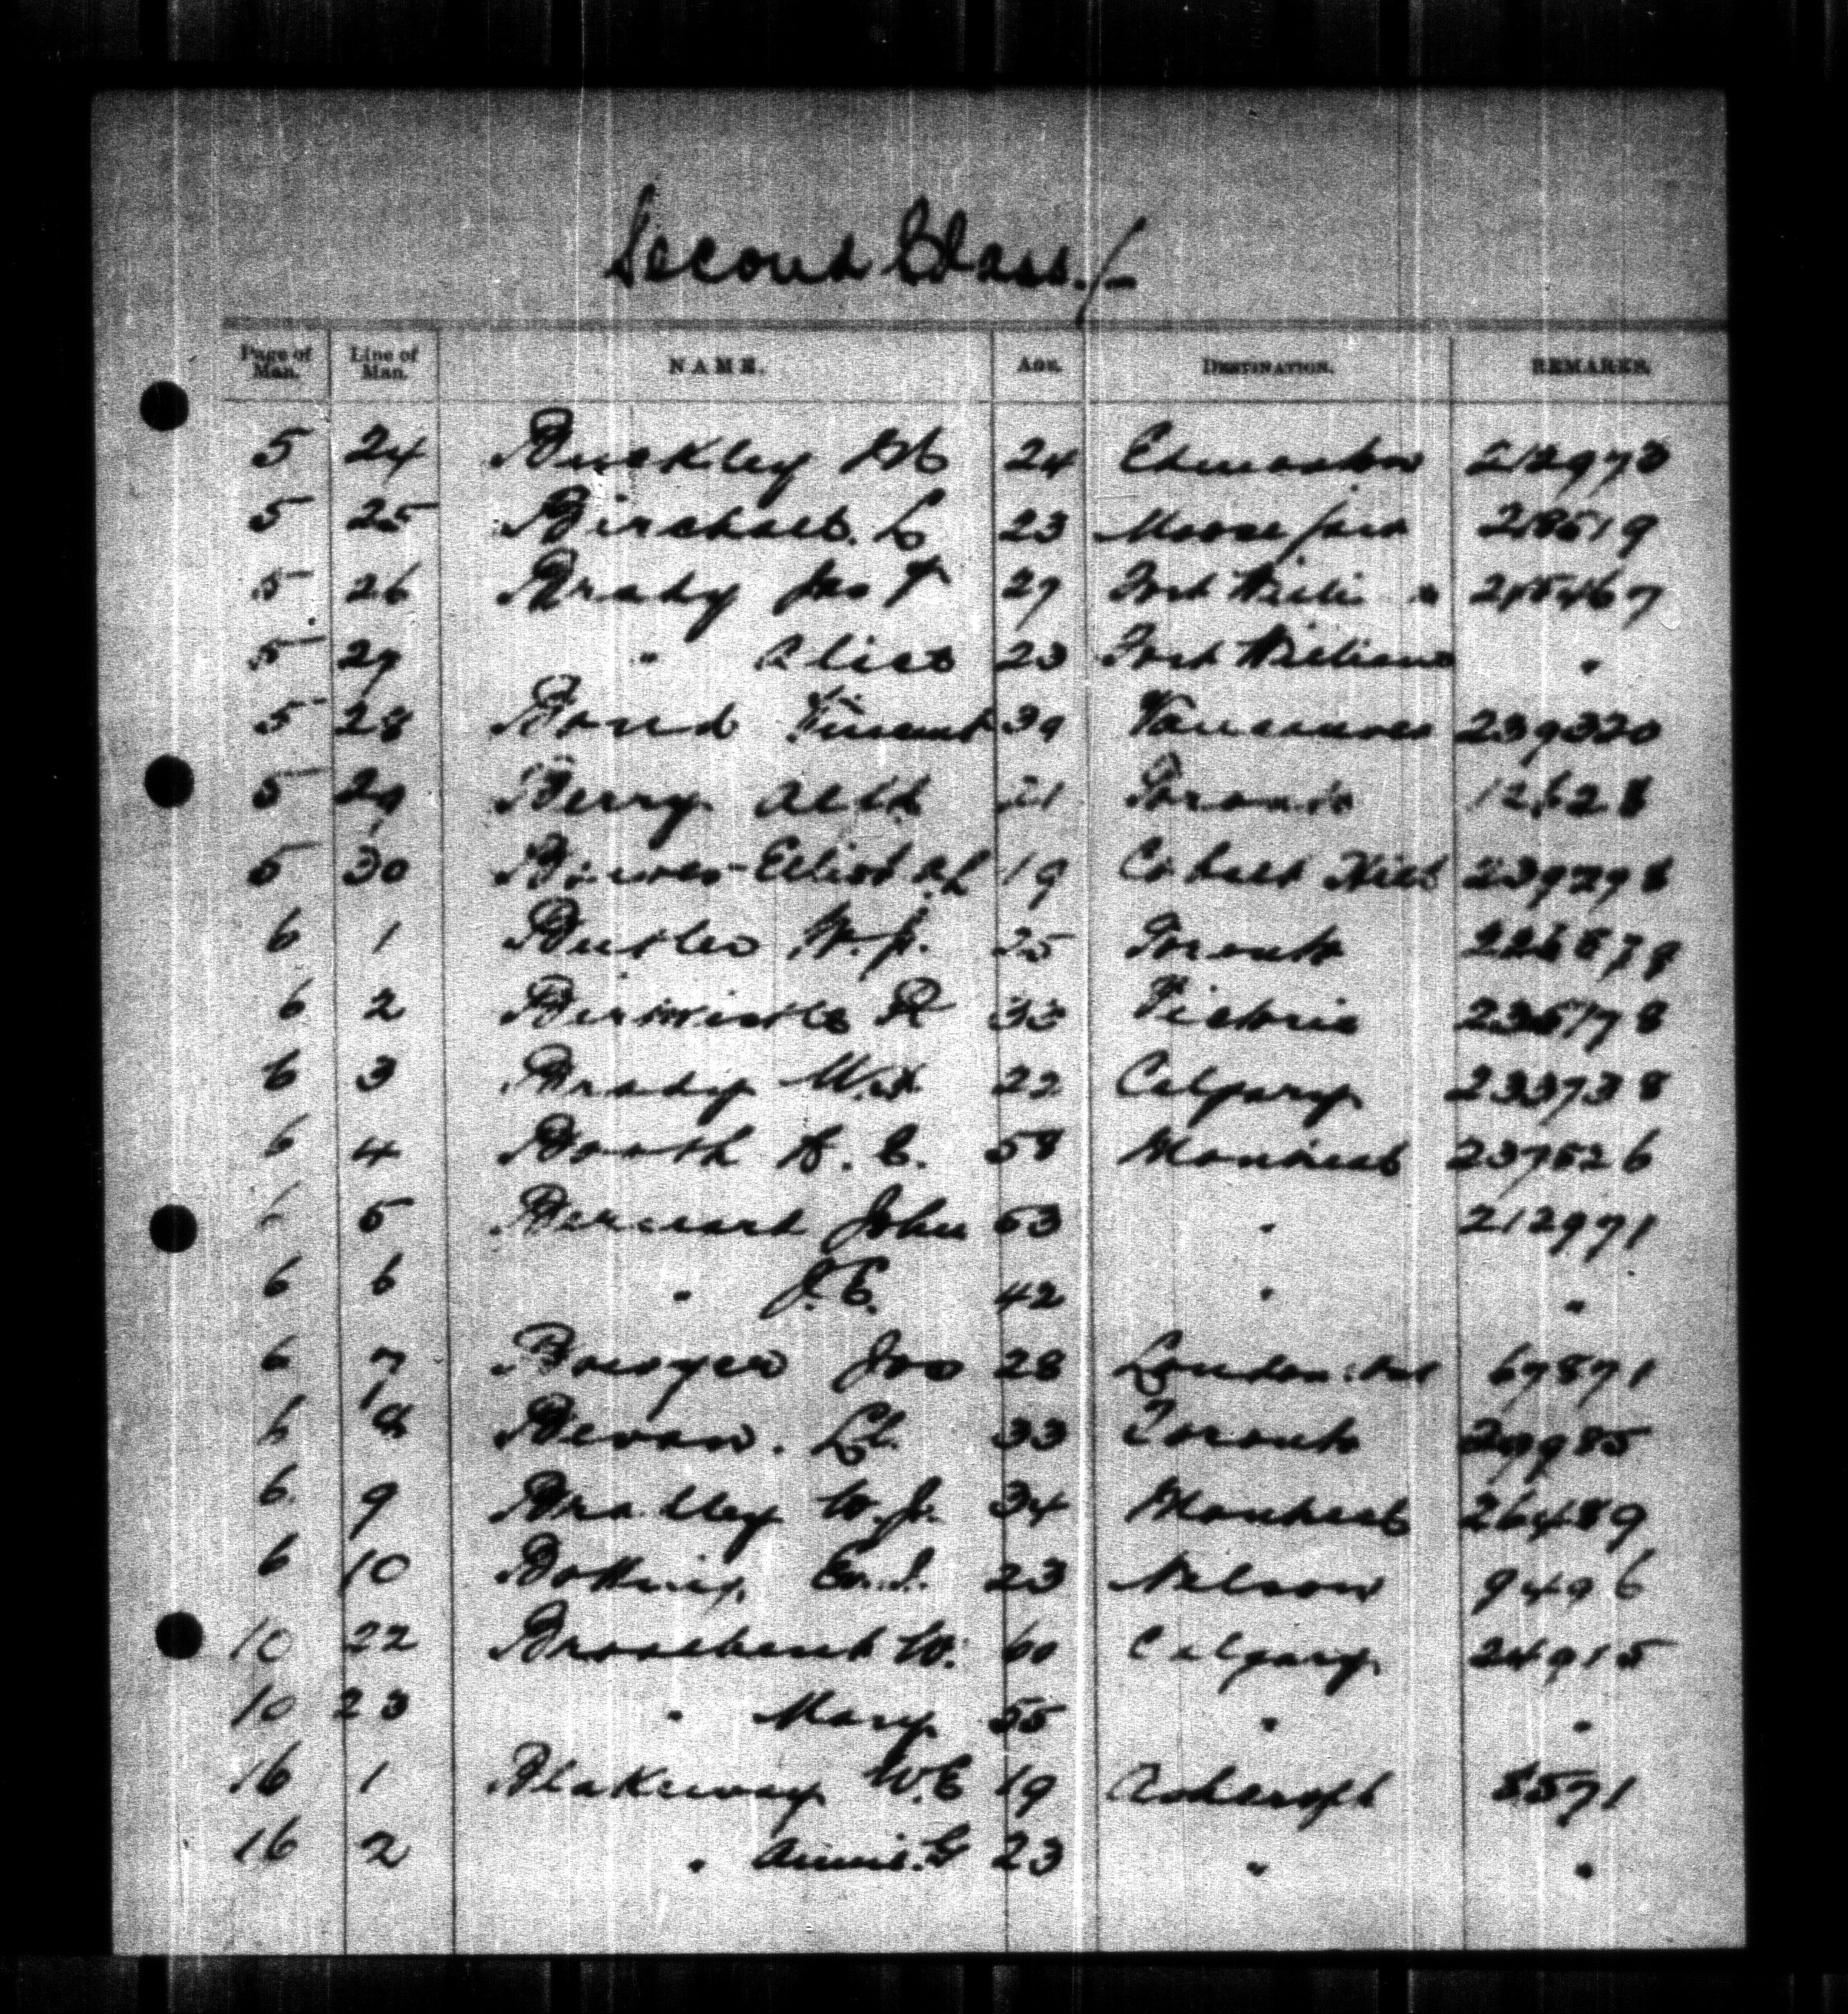 Second Class./-
Page of Man. Line of Man. NAME. AGE. DESTINATION. REMARKS.
5 24 Buckley 24 Edmonton 212973
5 25 Birchall. L 23 Moose Jaw 218519
5 26 Brady Jas T 27 Fort Willi m
5 27 " Alice 23 Fort William "
5 28 Bond Vincent 39 Vancouver 239320
5 29 Berry Albt 21 Toronto 12628
5 30 Elliot 19 Cobalt Hill 239298
6 1 Butler W.J. 25 Toronto
6 2 Birtwistle R 33 Victoria 235178
6 3 Brady 22 Calgary 233738
6 4 Booth 58 Montreal 237526
6 5 John 53 " 212971
6 6 " J.E. 42 " "
6 7 Bowyer Jno 28 London. Ont 67871
6 8 Bevan. 33 Toronto
6. 9 Bradley W.J. 34 Montreal 26489
6 10 Botting 23 Nelson 9496
10 22 Broadbent W. 60 Calgary 24915
10 23 " Mary 55 " "
16 1 Blakeway W.E 19 Ashcroft 5571
16 2 " Annie. G 23 " "